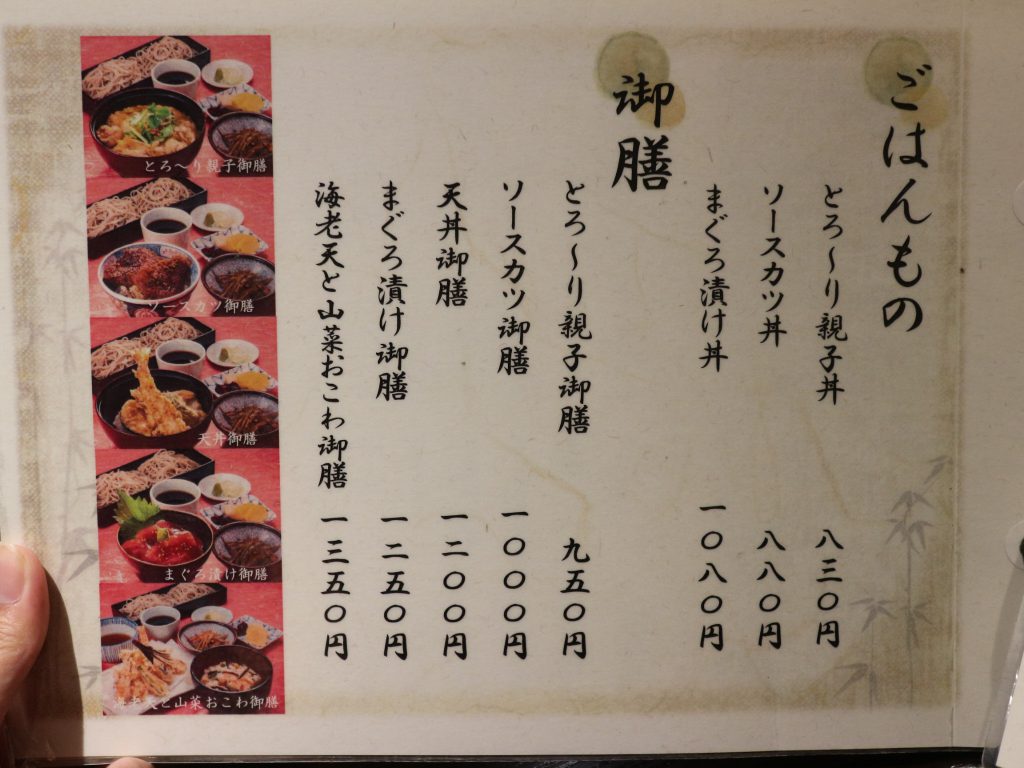 ごはんもの
とろ〜り親子丼 八三〇円
ソースカツ丼 八八〇円
まぐろ漬け丼 一〇八〇円
御膳
とろ〜り親子御膳 九五〇円
ソースカツ御膳 一〇〇〇円
天丼御膳 一二〇〇円
まぐろ漬け御膳 一二五〇円
海老天と山菜おこわ御膳 一三五〇円
とろ〜り親子御膳
ソースカツ御膳
天丼御膳
まぐろ漬け御膳
海老天と山菜おこわ御膳